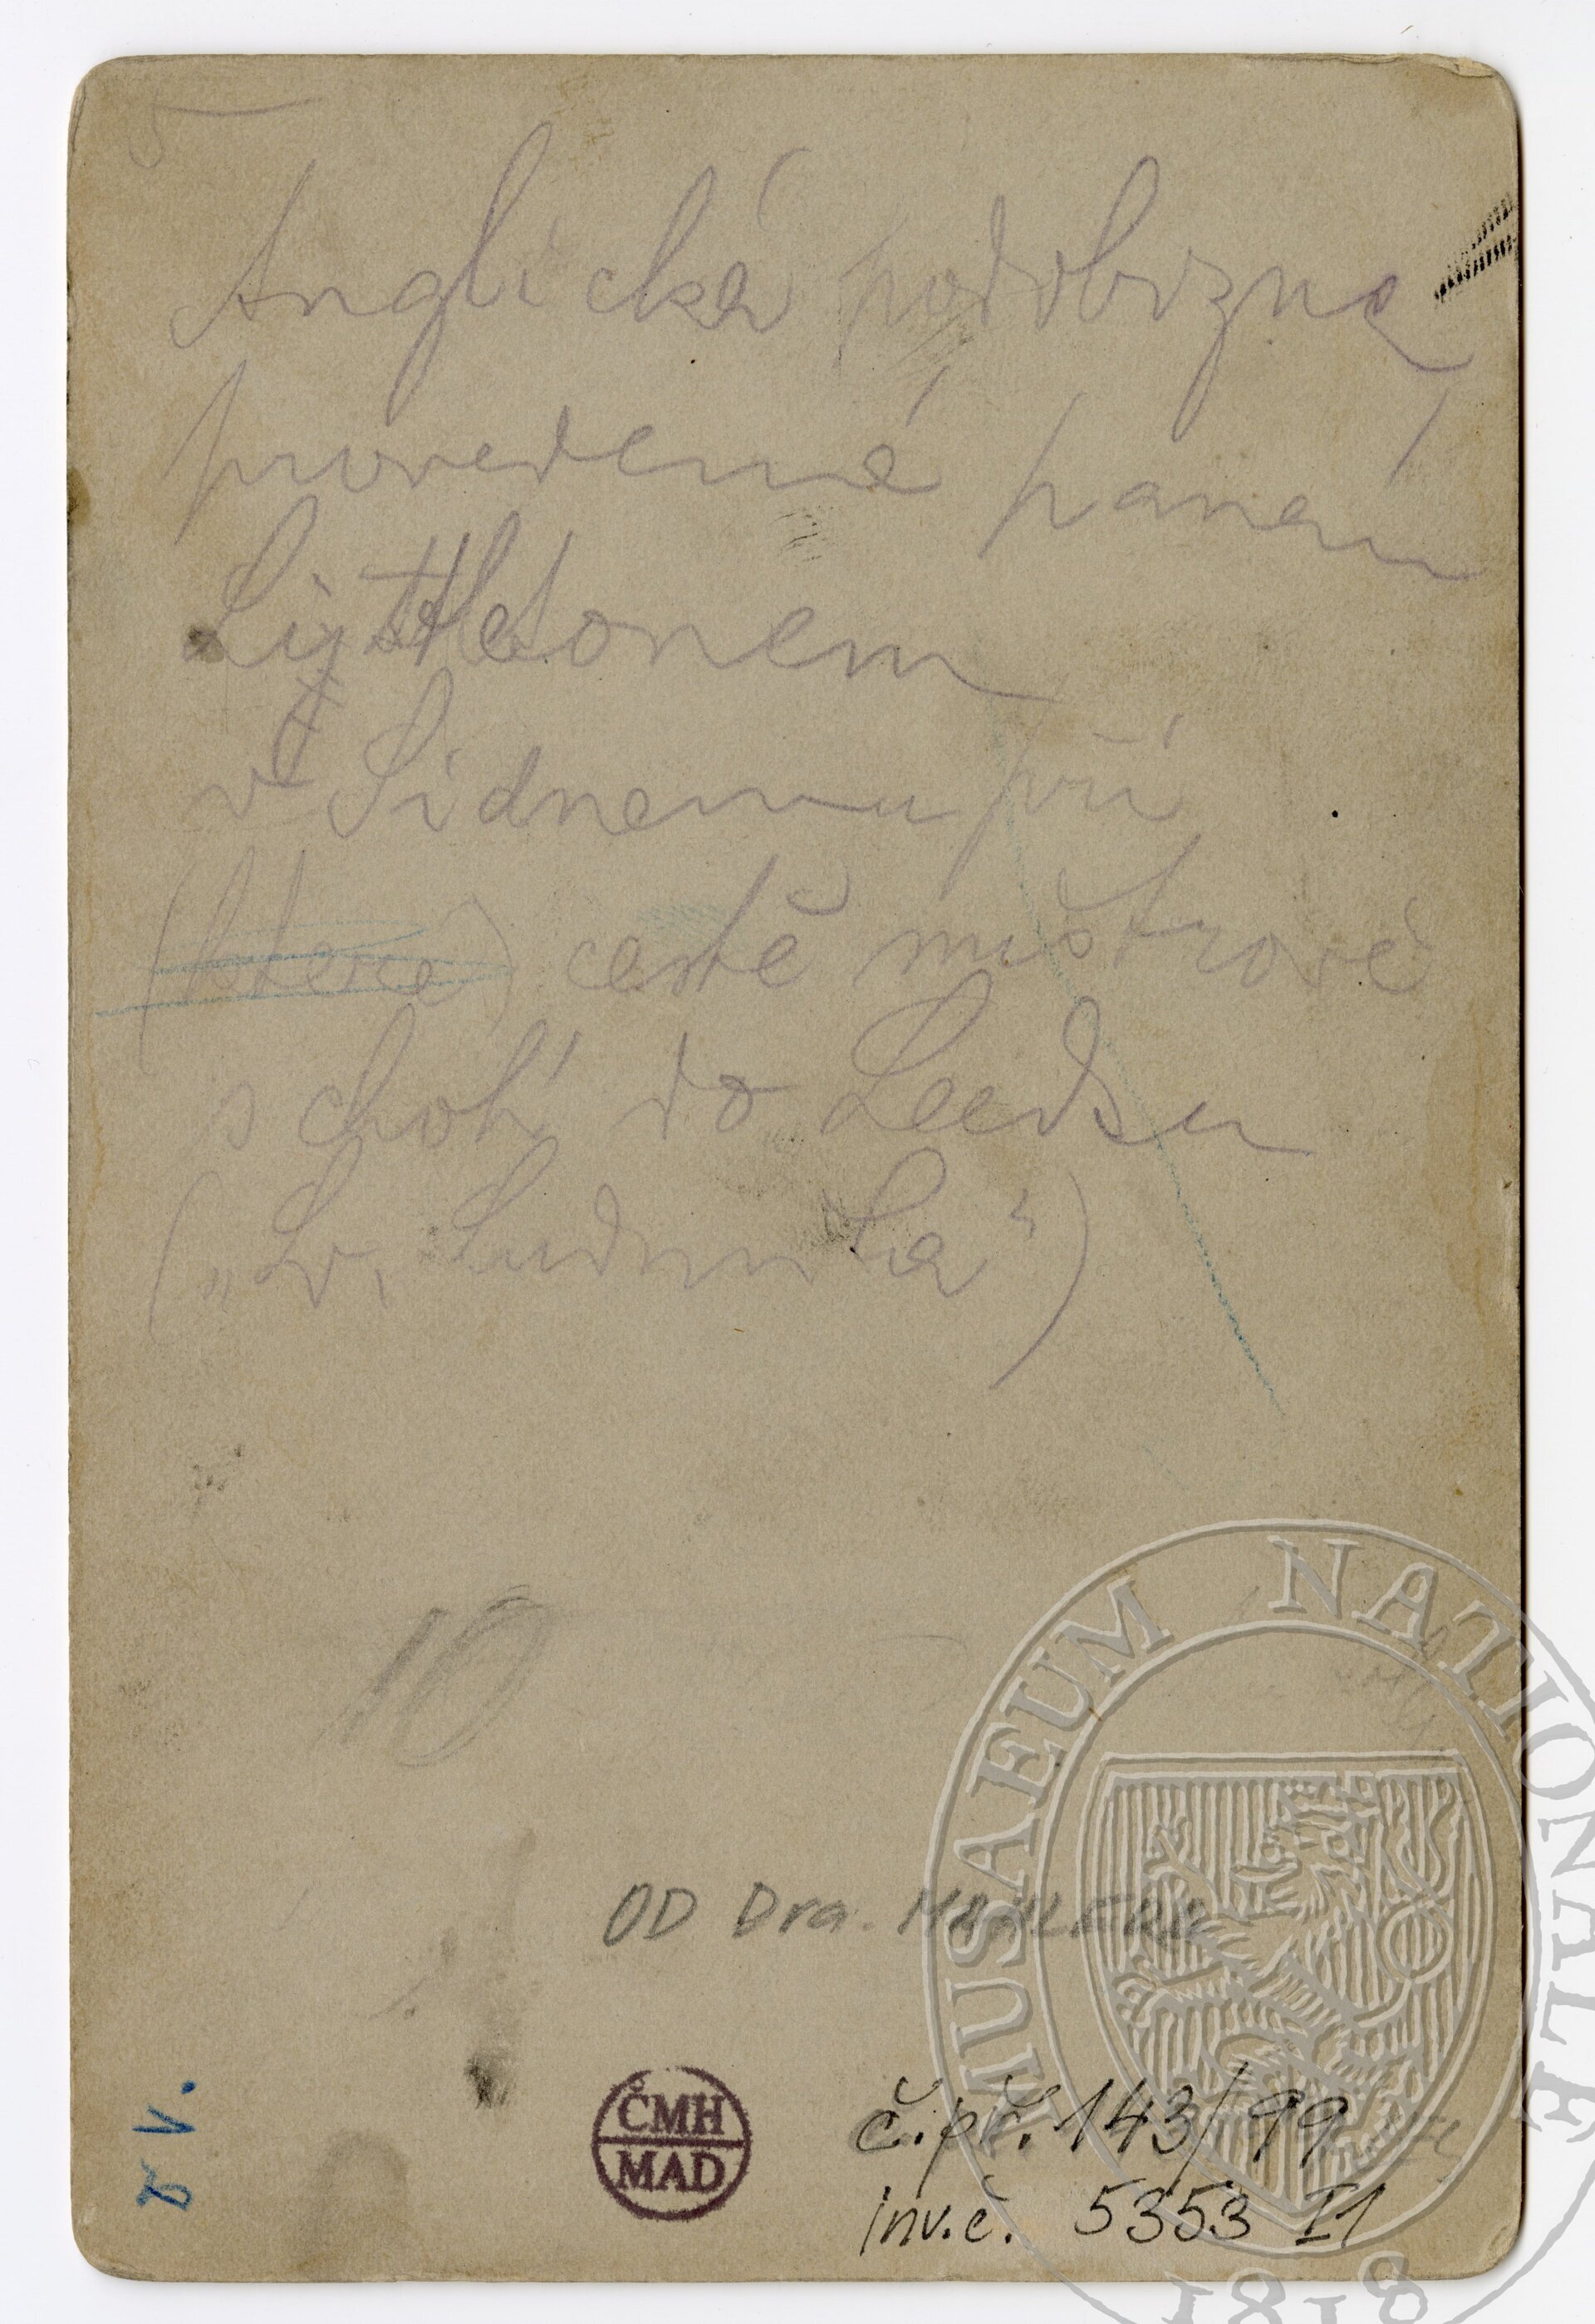 Anglická podobizna
provedená panem
Lyttletonem
v Sidnemu při
(které) cestě mistrově
s chotí do Leedsu
(„Sv. Ludmila“)
10
OD Dra.
ČMH
MAD
č.př. 143/99
inv.č. 5353 I1
V.
MUSAEUM NATIONALE
1818